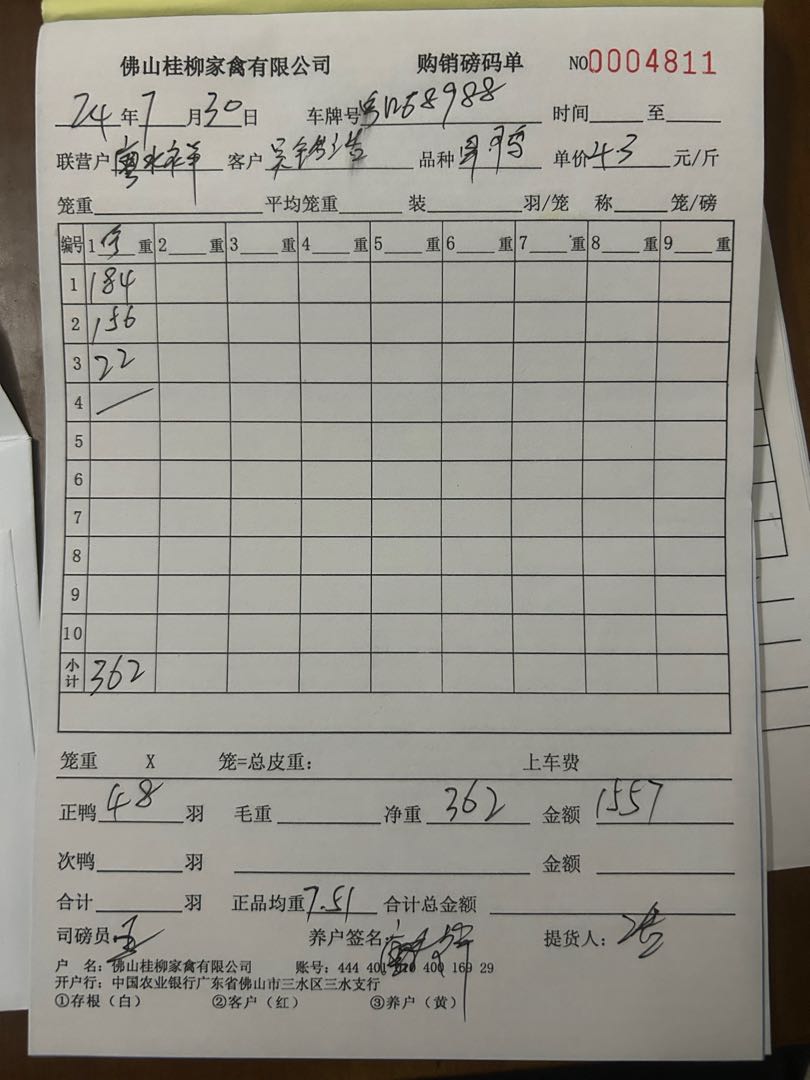 佛山桂柳家禽有限公司 购销磅码单 NO0004811
24年7月30日 车牌号 68988 时间 至
联营户 客户 品种 单价4.3元/斤
笼重 平均笼重 装 羽/笼 称 笼/磅
编号 1 重 2 重 3 重 4 重 5 重 6 重 7 重 8 重 9 重
1 184
2 156
3 22
4
5
6
7
8
9
10
小计 362
笼重 X 笼=总皮重: 上车费
正鸭48羽 毛重 净重362 金额1557
次鸭 羽 金额
合计 羽 正品均重7.51 合计总金额
司磅员 养户签名: 提货人:
户 名: 佛山桂柳家禽有限公司 账号: 444 401 010 400 169 29
开户行: 中国农业银行广东省佛山市三水区三水支行
①存根(白) ②客户(红) ③养户(黄)